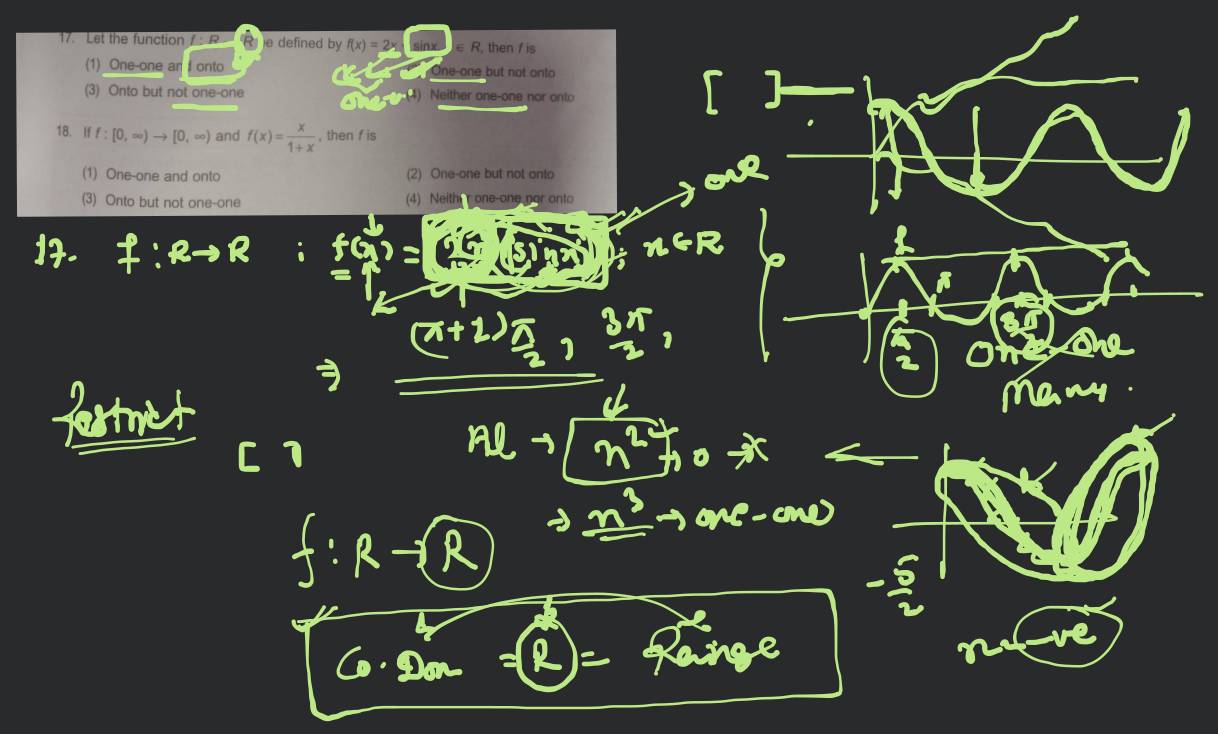 17. Let the function f : R R be defined by f(x) = 2x sinx ∈ R, then f is
(1) One-one and onto
One-one but not onto
(3) Onto but not one-one
(4) Neither one-one nor onto
one
18. If f : [0, ∞) → [0, ∞) and f(x) = x/(1 + x), then f is
(1) One-one and onto
(2) One-one but not onto
(3) Onto but not one-one
(4) Neither one-one nor onto
[ ]
one
17. f : R → R ; f(x) = 2x (sinx) ; x ∈ R
π
π/2
3π/2
(π+1) π/2, 3π/2,
⇒
one-one
many.
Restrict
[ ]
x² → 0
⇒ x³ → one-one
f : R → R
-5/2
-ve
Co-Dom = R = Range